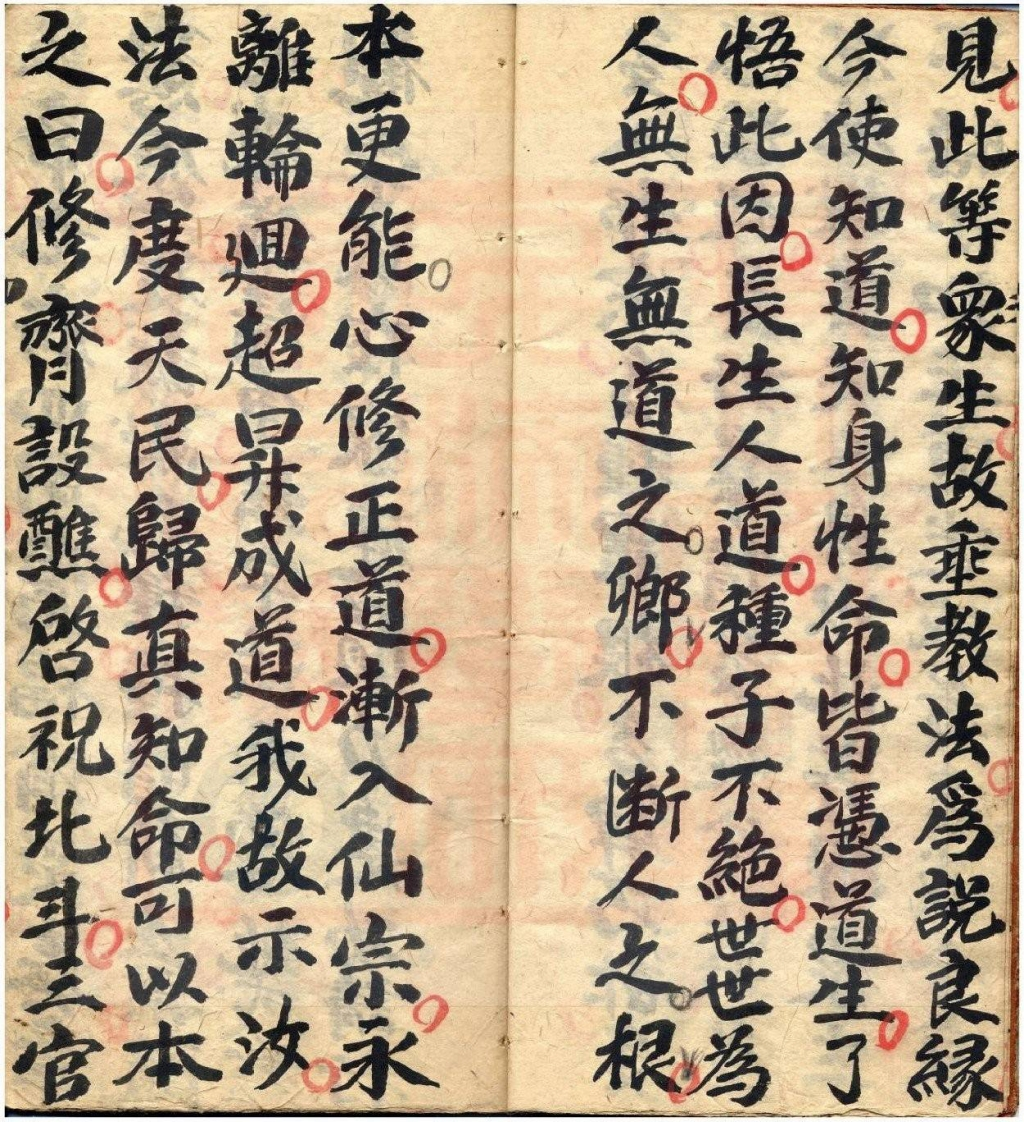 見此等衆生故垂教法爲説良緣
今使知道知身性命皆憑道生了
悟此因長生人道種子不絶世世為
人無生無道之鄉不断人之根
本更能心修正道漸入仙宗永
離輪廻超昇成道我故示汝
法今度天民歸真知命可以本
之日修齋設醮啓祝北斗三官